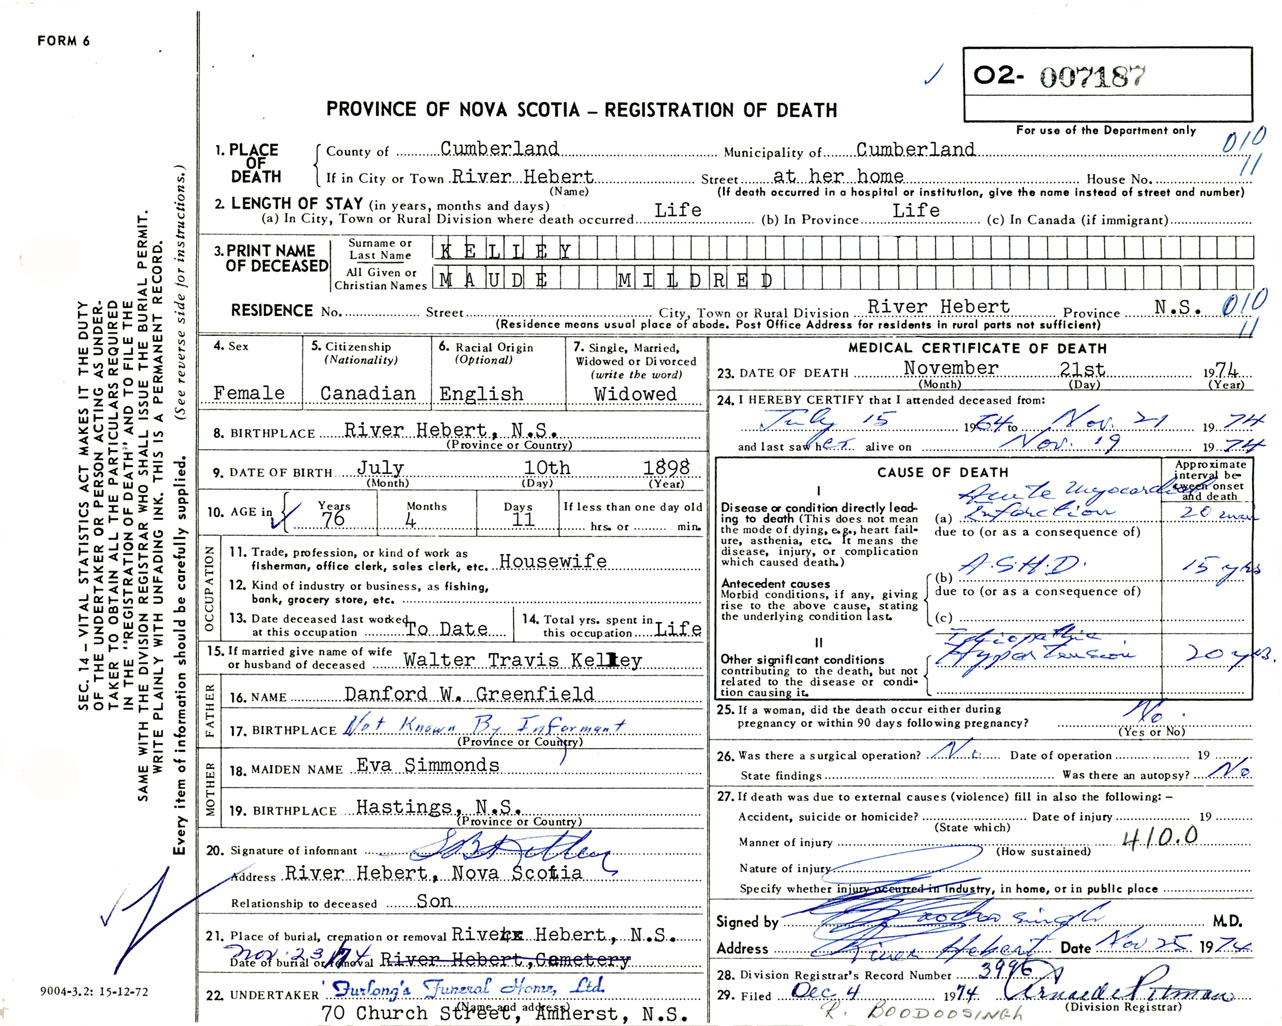 FORM 6
O2- 007187
PROVINCE OF NOVA SCOTIA – REGISTRATION OF DEATH
For use of the Department only
010
11
1. PLACE OF DEATH
County of Cumberland Municipality of Cumberland
If in City or Town River Hebert Street at her home House No.
(Name) (If death occurred in a hospital or institution, give the name instead of street and number)
2. LENGTH OF STAY (in years, months and days)
(a) In City, Town or Rural Division where death occurred Life (b) In Province Life (c) In Canada (if immigrant)
3. PRINT NAME OF DECEASED
Surname or Last Name KELLEY
All Given or Christian Names MAUDE MILDRED
RESIDENCE No. Street City, Town or Rural Division River Hebert Province N.S. 010
11
(Residence means usual place of abode. Post Office Address for residents in rural parts not sufficient)
4. Sex
Female
5. Citizenship
(Nationality)
Canadian
6. Racial Origin
(Optional)
English
7. Single, Married,
Widowed or Divorced
(write the word)
Widowed
8. BIRTHPLACE River Hebert, N.S.
(Province or Country)
9. DATE OF BIRTH July 10th 1898
(Month) (Day) (Year)
10. AGE in
Years Months Days If less than one day old
76 4 11 hrs. or min.
OCCUPATION
11. Trade, profession, or kind of work as
fisherman, office clerk, sales clerk, etc. Housewife
12. Kind of industry or business, as fishing,
bank, grocery store, etc.
13. Date deceased last worked
at this occupation To Date
14. Total yrs. spent in
this occupation Life
15. If married give name of wife
or husband of deceased Walter Travis Kelley
FATHER
16. NAME Danford W. Greenfield
17. BIRTHPLACE Not Known By Informant
(Province or Country)
MOTHER
18. MAIDEN NAME Eva Simmonds
19. BIRTHPLACE Hastings, N.S.
(Province or Country)
20. Signature of informant
Address River Hebert, Nova Scotia
Relationship to deceased Son
21. Place of burial, cremation or removal River Hebert, N.S.
Nov. 23/74
Date of burial or removal River Hebert, Cemetery
22. UNDERTAKER Furlong's Funeral Home, Ltd.
(Name and address)
70 Church Street, Amherst, N.S.
MEDICAL CERTIFICATE OF DEATH
23. DATE OF DEATH November 21st 1974
(Month) (Day) (Year)
24. I HEREBY CERTIFY that I attended deceased from:
July 15 1964 to Nov. 21 1974
and last saw her alive on Nov. 19 1974
CAUSE OF DEATH
Approximate interval between onset and death
I
Disease or condition directly leading to death (This does not mean the mode of dying, e.g., heart failure, asthenia, etc. It means the disease, injury, or complication which caused death.)
Acute Myocardial
(a) Infarction 20 min
due to (or as a consequence of)
Antecedent causes
Morbid conditions, if any, giving rise to the above cause, stating the underlying condition last.
(b) A.S.H.D. 15 yrs
due to (or as a consequence of)
(c)
II
Other significant conditions
contributing to the death, but not related to the disease or condition causing it.
Idiopathic
Hypertension 20 yrs.
25. If a woman, did the death occur either during
pregnancy or within 90 days following pregnancy? No.
(Yes or No)
26. Was there a surgical operation? No Date of operation 19
State findings Was there an autopsy? No
27. If death was due to external causes (violence) fill in also the following: –
Accident, suicide or homicide? Date of injury 19
(State which)
Manner of injury 410.0
(How sustained)
Nature of injury
Specify whether injury occurred in Industry, in home, or in public place
Signed by Boodoosingh M.D.
Address River Hebert Date Nov 25 1974
28. Division Registrar's Record Number 3996
29. Filed Dec 4 1974
(Division Registrar)
R. BOODOOSINGH
SEC. 14 – VITAL STATISTICS ACT MAKES IT THE DUTY
OF THE UNDERTAKER OR PERSON ACTING AS UNDER-
TAKER TO OBTAIN ALL THE PARTICULARS REQUIRED
IN THE "REGISTRATION OF DEATH" AND TO FILE THE
SAME WITH THE DIVISION REGISTRAR WHO SHALL ISSUE THE BURIAL PERMIT.
WRITE PLAINLY WITH UNFADING INK. THIS IS A PERMANENT RECORD.
Every item of information should be carefully supplied. (See reverse side for instructions.)
9004-3.2: 15-12-72